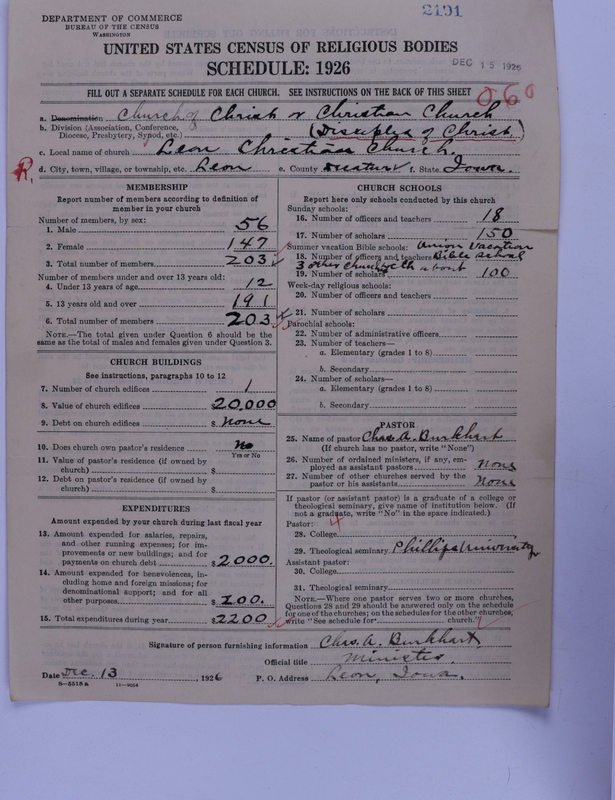 2191
DEPARTMENT OF COMMERCE
BUREAU OF THE CENSUS
WASHINGTON
UNITED STATES CENSUS OF RELIGIOUS BODIES
SCHEDULE: 1926
DEC 15 1926
FILL OUT A SEPARATE SCHEDULE FOR EACH CHURCH. SEE INSTRUCTIONS ON THE BACK OF THIS SHEET
060
a. Denomination Church of Christ or Christian Church
b. Division (Association, Conference, Diocese, Presbytery, Synod, etc.) (Disciples of Christ)
c. Local name of church Leon Christian Church.
R.
d. City, town, village, or township, etc. Leon e. County Decatur f. State Iowa.
MEMBERSHIP
Report number of members according to definition of
member in your church
Number of members, by sex:
1. Male 56
2. Female 147
3. Total number of members 203
Number of members under and over 13 years old:
4. Under 13 years of age 12
5. 13 years old and over 191
6. Total number of members 203
NOTE.—The total given under Question 6 should be
same as the total of males and females given under Question 3.
CHURCH BUILDINGS
See instructions, paragraphs 10 to 12
7. Number of church edifices 1
8. Value of church edifices $20,000
9. Debt on church edifices $ None
10. Does church own pastor's residence No
Yes or No
11. Value of pastor's residence (if owned by
church) $
12. Debt on pastor's residence (if owned by
church) $
EXPENDITURES
Amount expended by your church during last fiscal year
13. Amount expended for salaries, repairs,
and other running expenses; for im-
provements or new buildings; and for
payments on church debt $2000.
14. Amount expended for benevolences, in-
cluding home and foreign missions; for
denominational support; and for all
other purposes $200.
15. Total expenditures during year $2200
CHURCH SCHOOLS
Report here only schools conducted by this church
Sunday schools:
16. Number of officers and teachers 18
17. Number of scholars 150
Summer vacation Bible schools: Union Vacation
18. Number of officers and teachers Bible School
3 other church about
19. Number of scholars 100
Week-day religious schools:
20. Number of officers and teachers
21. Number of scholars
Parochial schools:
22. Number of administrative officers
23. Number of teachers—
a. Elementary (grades 1 to 8)
b. Secondary
24. Number of scholars—
a. Elementary (grades 1 to 8)
b. Secondary
PASTOR
25. Name of pastor Chas. A. Burkhart
(If church has no pastor, write "None")
26. Number of ordained ministers, if any, em-
ployed as assistant pastors None
27. Number of other churches served by the
pastor or his assistants None
If pastor (or assistant pastor) is a graduate of a college or
theological seminary, give name of institution below. (If
not a graduate, write "No" in the space indicated.)
Pastor:
28. College
29. Theological seminary Phillips University
Assistant pastor:
30. College
31. Theological seminary
NOTE.—Where one pastor serves two or more churches,
Questions 28 and 29 should be answered only on the schedule
for one of the churches; on the schedules for the other churches,
write "See schedule for church."
Signature of person furnishing information Chas. A. Burkhart
Official title Minister.
Date Dec. 13, 1926 P. O. Address Leon, Iowa.